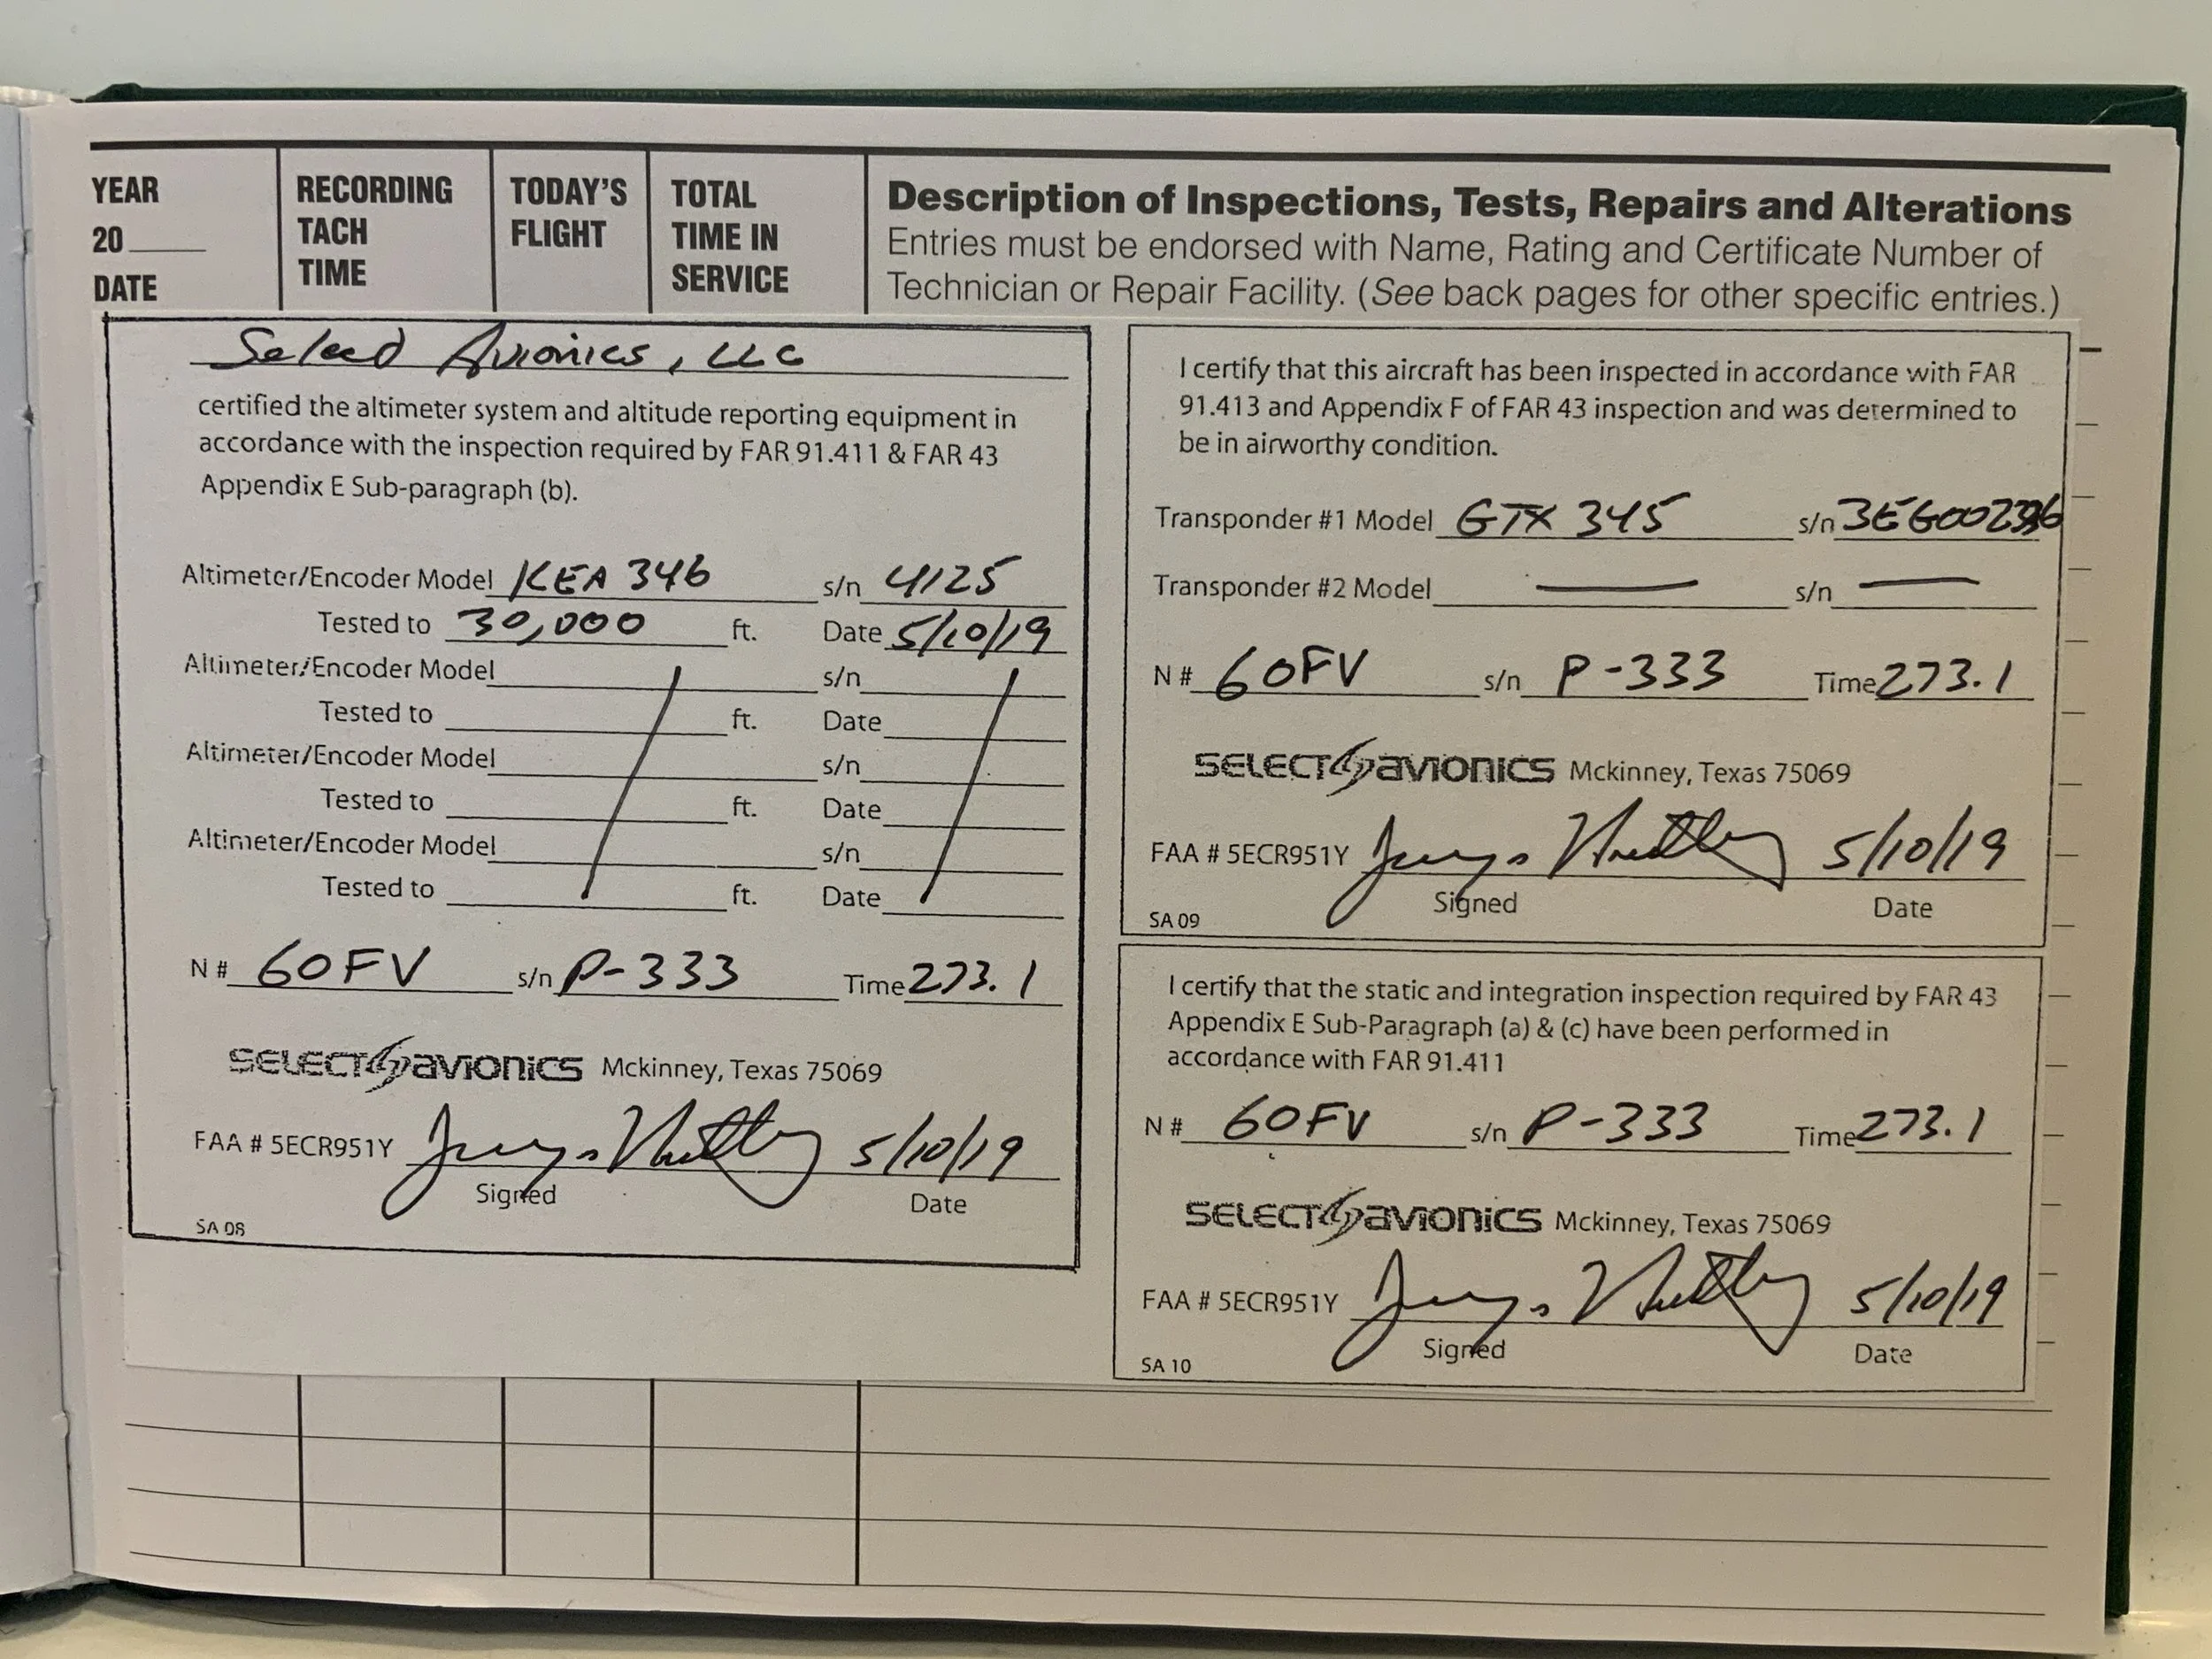 YEAR
20____
DATE
RECORDING
TACH
TIME
TODAY'S
FLIGHT
TOTAL
TIME IN
SERVICE
Description of Inspections, Tests, Repairs and Alterations
Entries must be endorsed with Name, Rating and Certificate Number of
Technician or Repair Facility. (See back pages for other specific entries.)
Select Avionics, LLC
certified the altimeter system and altitude reporting equipment in
accordance with the inspection required by FAR 91.411 & FAR 43
Appendix E Sub-paragraph (b).
Altimeter/Encoder Model KEA 346 s/n 4125
Tested to 30,000 ft. Date 5/10/19
Altimeter/Encoder Model s/n
Tested to ft. Date
Altimeter/Encoder Model s/n
Tested to ft. Date
Altimeter/Encoder Model s/n
Tested to ft. Date
N # 60FV s/n P-333 Time 273.1
SELECT AVIONICS Mckinney, Texas 75069
FAA # 5ECR951Y 5/10/19
Signed Date
SA 08
I certify that this aircraft has been inspected in accordance with FAR
91.413 and Appendix F of FAR 43 inspection and was determined to
be in airworthy condition.
Transponder #1 Model GTX 345 s/n
Transponder #2 Model — s/n —
N # 60FV s/n P-333 Time 273.1
SELECT AVIONICS Mckinney, Texas 75069
FAA # 5ECR951Y 5/10/19
Signed Date
SA 09
I certify that the static and integration inspection required by FAR 43
Appendix E Sub-Paragraph (a) & (c) have been performed in
accordance with FAR 91.411
N # 60FV s/n P-333 Time 273.1
SELECT AVIONICS Mckinney, Texas 75069
FAA # 5ECR951Y 5/10/19
Signed Date
SA 10